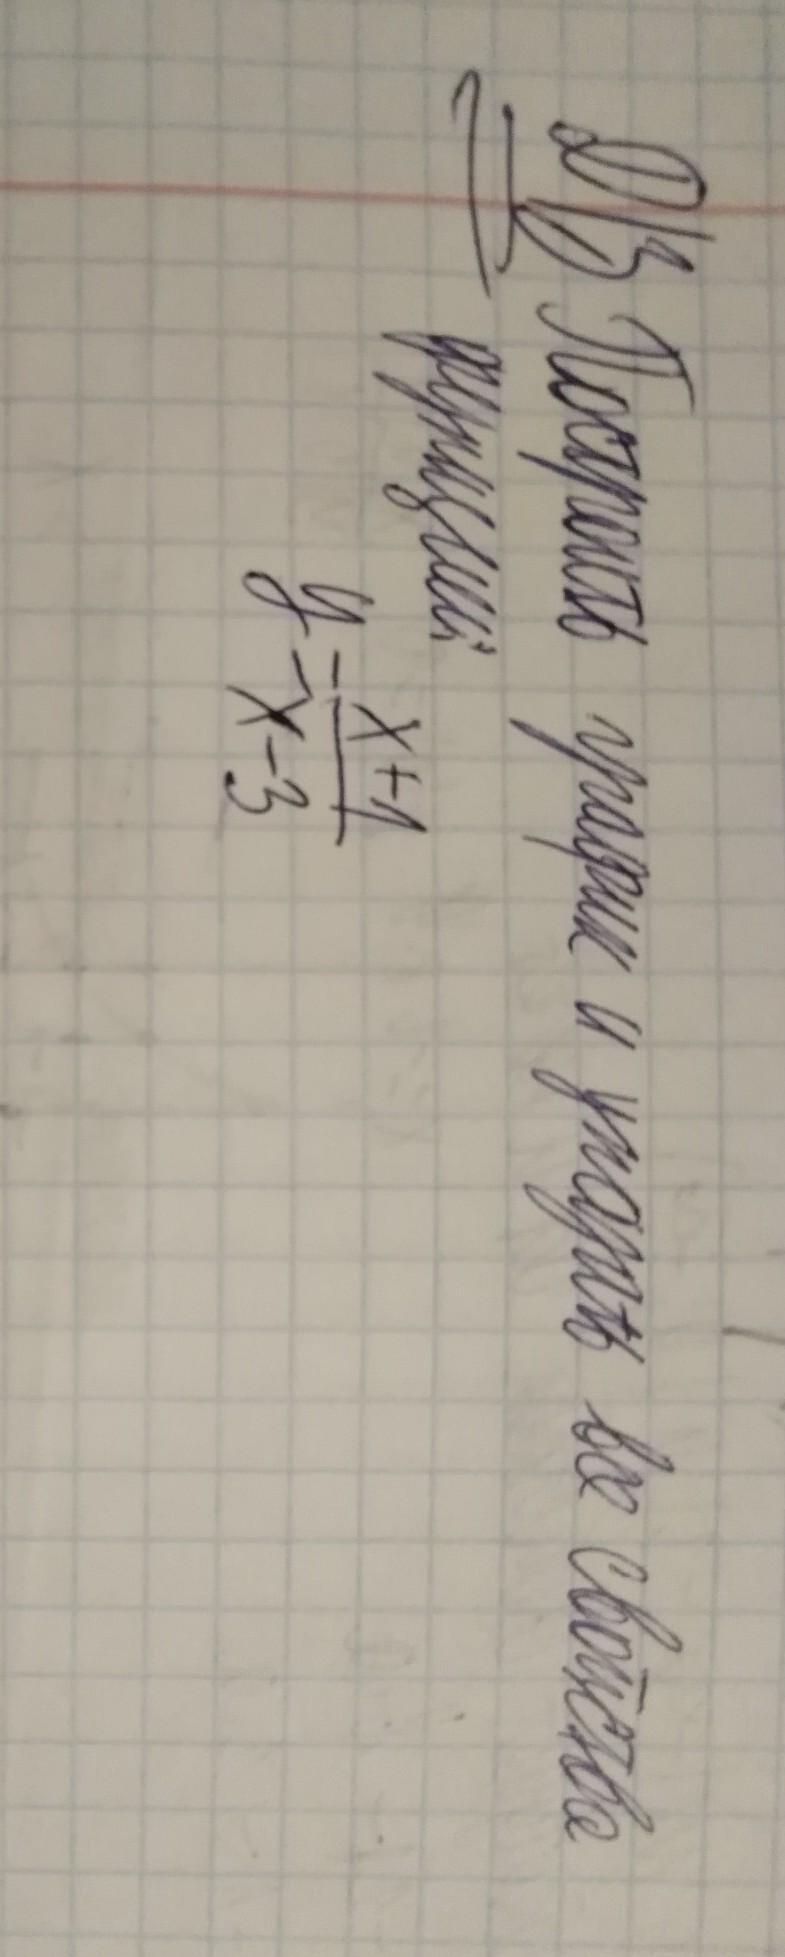 Д/З Построить график и указать все свойства
функции:
y = x+1 / x-3